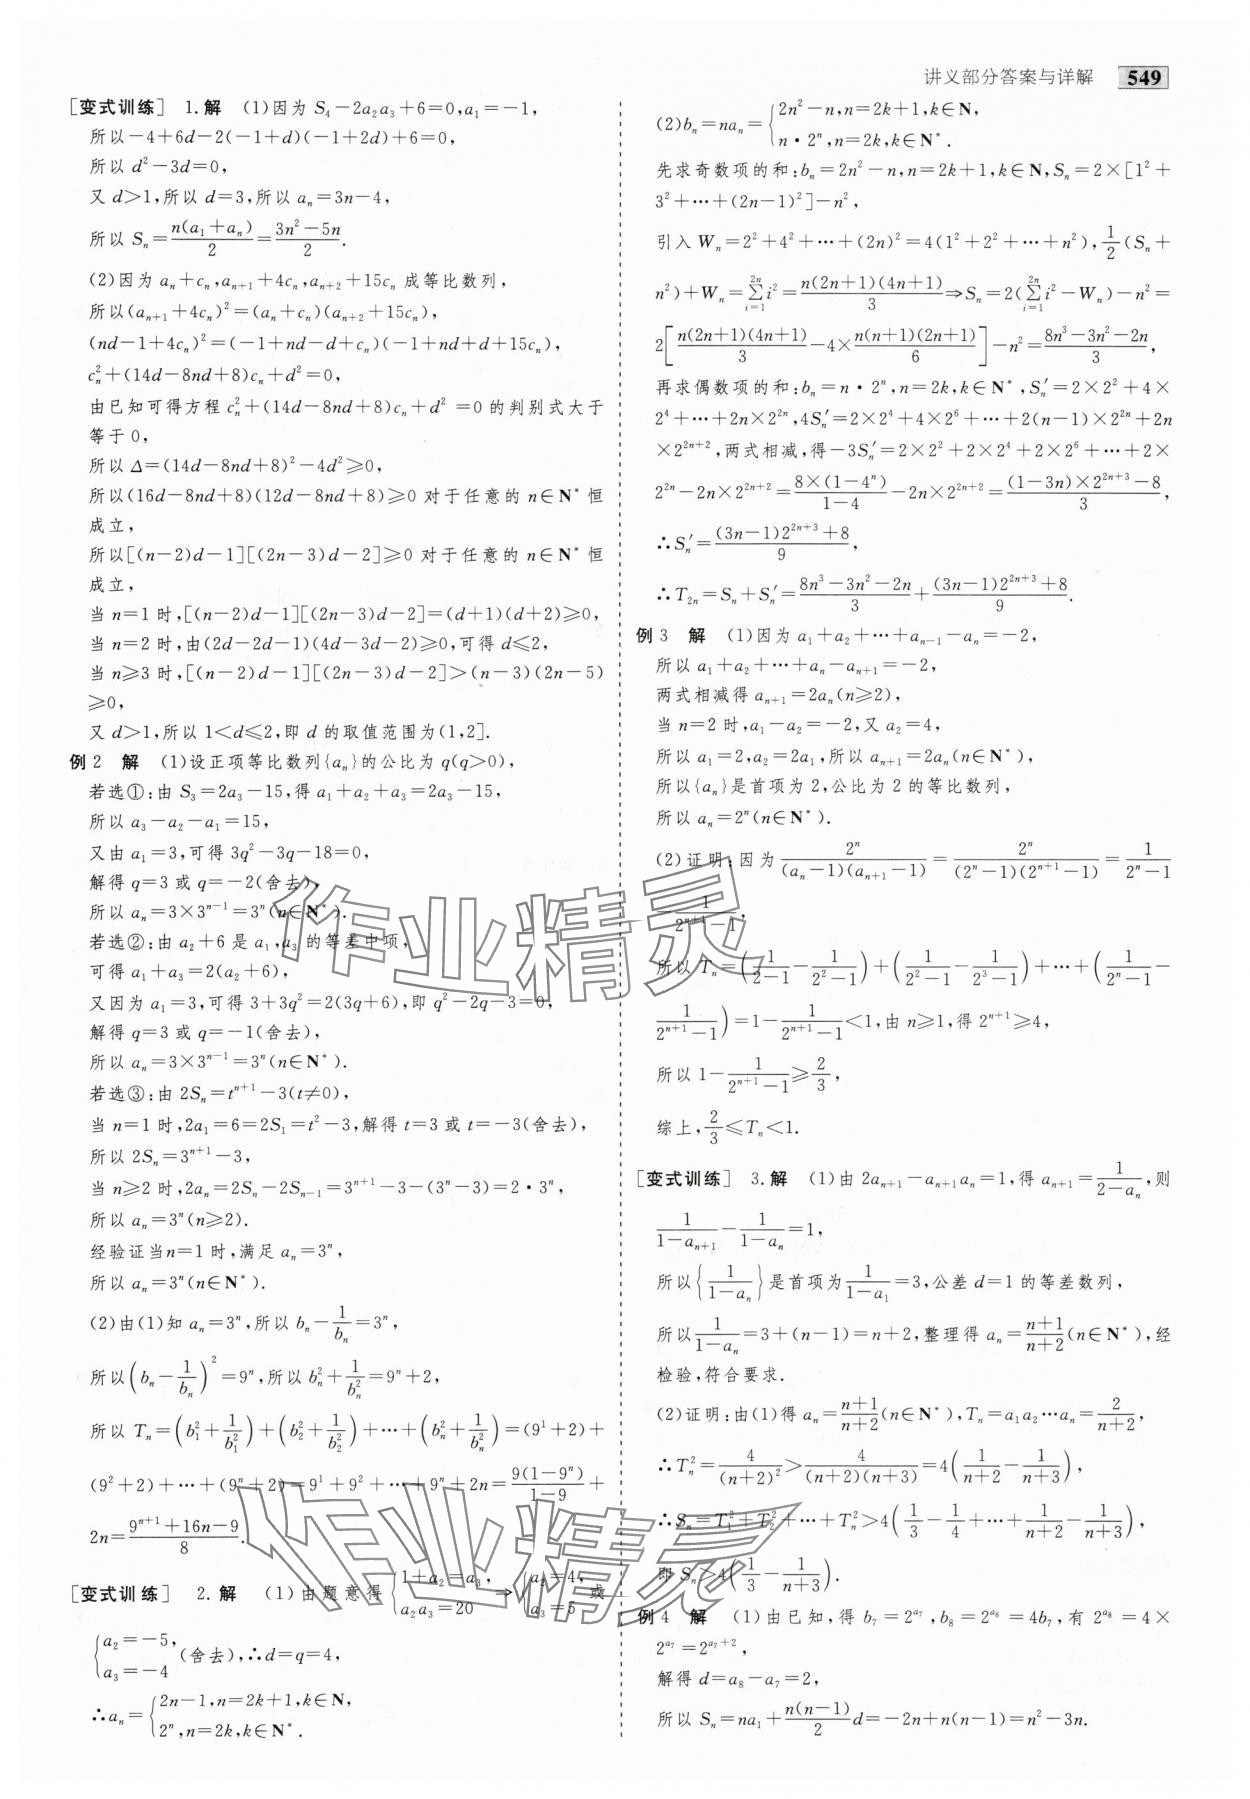 讲义部分答案与详解 549
[变式训练] 1.解 (1)因为 S₄-2a₂a₃+6=0,a₁=-1,
所以-4+6d-2(-1+d)(-1+2d)+6=0,
所以 d²-3d=0,
又 d>1,所以 d=3,所以 aₙ=3n-4,
所以 Sₙ=n(a₁+aₙ)/2=(3n²-5n)/2.
(2)因为 aₙ+cₙ,aₙ₊₁+4cₙ,aₙ₊₂+15cₙ 成等比数列,
所以(aₙ₊₁+4cₙ)²=(aₙ+cₙ)(aₙ₊₂+15cₙ),
(nd-1+4cₙ)²=(-1+nd-d+cₙ)(-1+nd+d+15cₙ),
cₙ²+(14d-8nd+8)cₙ+d²=0,
由已知可得方程 cₙ²+(14d-8nd+8)cₙ+d²=0 的判别式大于
等于 0,
所以 Δ=(14d-8nd+8)²-4d²≥0,
所以(16d-8nd+8)(12d-8nd+8)≥0 对于任意的 n∈N* 恒
成立,
所以[(n-2)d-1][(2n-3)d-2]≥0 对于任意的 n∈N* 恒
成立,
当 n=1 时,[(n-2)d-1][(2n-3)d-2]=(d+1)(d+2)≥0,
当 n=2 时,由(2d-2d-1)(4d-3d-2)≥0,可得 d≤2,
当 n≥3 时,[(n-2)d-1][(2n-3)d-2]>(n-3)(2n-5)
≥0,
又 d>1,所以 1<d≤2,即 d 的取值范围为(1,2].
例 2 解 (1)设正项等比数列{aₙ}的公比为 q(q>0),
若选①:由 S₃=2a₃-15,得 a₁+a₂+a₃=2a₃-15,
所以 a₃-a₂-a₁=15,
又由 a₁=3,可得 3q²-3q-18=0,
解得 q=3 或 q=-2(舍去),
所以 aₙ=3×3ⁿ⁻¹=3ⁿ(n∈N*).
若选②:由 a₂+6 是 a₁,a₃ 的等差中项,
可得 a₁+a₃=2(a₂+6),
又因为 a₁=3,可得 3+3q²=2(3q+6),即 q²-2q-3=0,
解得 q=3 或 q=-1(舍去),
所以 aₙ=3×3ⁿ⁻¹=3ⁿ(n∈N*).
若选③:由 2Sₙ=tⁿ⁺¹-3(t≠0),
当 n=1 时,2a₁=6=2S₁=t²-3,解得 t=3 或 t=-3(舍去),
所以 2Sₙ=3ⁿ⁺¹-3,
当 n≥2 时,2aₙ=2Sₙ-2Sₙ₋₁=3ⁿ⁺¹-3-(3ⁿ-3)=2·3ⁿ,
所以 aₙ=3ⁿ(n≥2).
经验证当n=1 时,满足 aₙ=3ⁿ,
所以 aₙ=3ⁿ(n∈N*).
(2)由(1)知 aₙ=3ⁿ,所以 bₙ-1/bₙ=3ⁿ,
所以(bₙ-1/bₙ)²=9ⁿ,所以 bₙ²+1/bₙ²=9ⁿ+2,
所以 Tₙ=(b₁²+1/b₁²)+(b₂²+1/b₂²)+…+(bₙ²+1/bₙ²)=(9¹+2)+
(9²+2)+…+(9ⁿ+2)=9¹+9²+…+9ⁿ+2n=9(1-9ⁿ)/(1-9)+
2n=(9ⁿ⁺¹+16n-9)/8.
[变式训练] 2.解 (1)由题意得{1+a₂=a₃, a₂a₃=20 ⇒ {a₂=4, a₃=5 或
{a₂=-5, a₃=-4 (舍去),∴d=q=4,
∴aₙ={2n-1,n=2k+1,k∈N, 2ⁿ,n=2k,k∈N*.
(2)bₙ=naₙ={2n²-n,n=2k+1,k∈N, n·2ⁿ,n=2k,k∈N*.
先求奇数项的和:bₙ=2n²-n,n=2k+1,k∈N,Sₙ=2×[1²+
3²+…+(2n-1)²]-n²,
引入 Wₙ=2²+4²+…+(2n)²=4(1²+2²+…+n²),1/2(Sₙ+
n²)+Wₙ=∑_{i=1}^{2n}i²=n(2n+1)(4n+1)/3⇒Sₙ=2(∑_{i=1}^{2n}i²-Wₙ)-n²=
2[n(2n+1)(4n+1)/3-4×n(n+1)(2n+1)/6]-n²=(8n³-3n²-2n)/3,
再求偶数项的和:bₙ=n·2ⁿ,n=2k,k∈N*,Sₙ′=2×2²+4×
2⁴+…+2n×2²ⁿ,4Sₙ′=2×2⁴+4×2⁶+…+2(n-1)×2²ⁿ+2n
×2²ⁿ⁺²,两式相减,得-3Sₙ′=2×2²+2×2⁴+2×2⁶+…+2×
2²ⁿ-2n×2²ⁿ⁺²=8×(1-4ⁿ)/(1-4)-2n×2²ⁿ⁺²=((1-3n)×2²ⁿ⁺³-8)/3,
∴Sₙ′=((3n-1)2²ⁿ⁺³+8)/9,
∴T₂ₙ=Sₙ+Sₙ′=(8n³-3n²-2n)/3+((3n-1)2²ⁿ⁺³+8)/9.
例 3 解 (1)因为 a₁+a₂+…+aₙ₋₁-aₙ=-2,
所以 a₁+a₂+…+aₙ-aₙ₊₁=-2,
两式相减得 aₙ₊₁=2aₙ(n≥2),
当 n=2 时,a₁-a₂=-2,又 a₂=4,
所以 a₁=2,a₂=2a₁,所以 aₙ₊₁=2aₙ(n∈N*),
所以{aₙ}是首项为 2,公比为 2 的等比数列,
所以 aₙ=2ⁿ(n∈N*).
(2)证明:因为 2ⁿ/((aₙ-1)(aₙ₊₁-1))=2ⁿ/((2ⁿ-1)(2ⁿ⁺¹-1))=1/(2ⁿ-1)
-1/(2ⁿ⁺¹-1),
所以 Tₙ=(1/(2-1)-1/(2²-1))+(1/(2²-1)-1/(2³-1))+…+(1/(2ⁿ-1)-
1/(2ⁿ⁺¹-1))=1-1/(2ⁿ⁺¹-1)<1,由 n≥1,得 2ⁿ⁺¹≥4,
所以 1-1/(2ⁿ⁺¹-1)≥2/3,
综上,2/3≤Tₙ<1.
[变式训练] 3.解 (1)由 2aₙ₊₁-aₙ₊₁aₙ=1,得 aₙ₊₁=1/(2-aₙ),则
1/(1-aₙ₊₁)-1/(1-aₙ)=1,
所以{1/(1-aₙ)}是首项为1/(1-a₁)=3,公差 d=1 的等差数列,
所以1/(1-aₙ)=3+(n-1)=n+2,整理得 aₙ=(n+1)/(n+2)(n∈N*),经
检验,符合要求.
(2)证明:由(1)得 aₙ=(n+1)/(n+2)(n∈N*),Tₙ=a₁a₂…aₙ=2/(n+2),
∴Tₙ²=4/(n+2)²>4/((n+2)(n+3))=4(1/(n+2)-1/(n+3)),
∴Sₙ=T₁²+T₂²+…+Tₙ²>4(1/3-1/4+…+1/(n+2)-1/(n+3)),
即 Sₙ>4(1/3-1/(n+3)).
例 4 解 (1)由已知,得 b₇=2^{a₇},b₈=2^{a₈}=4b₇,有 2^{a₈}=4×
2^{a₇}=2^{a₇+2},
解得 d=a₈-a₇=2,
所以 Sₙ=na₁+n(n-1)/2 d=-2n+n(n-1)=n²-3n.
作业精灵
作业精灵